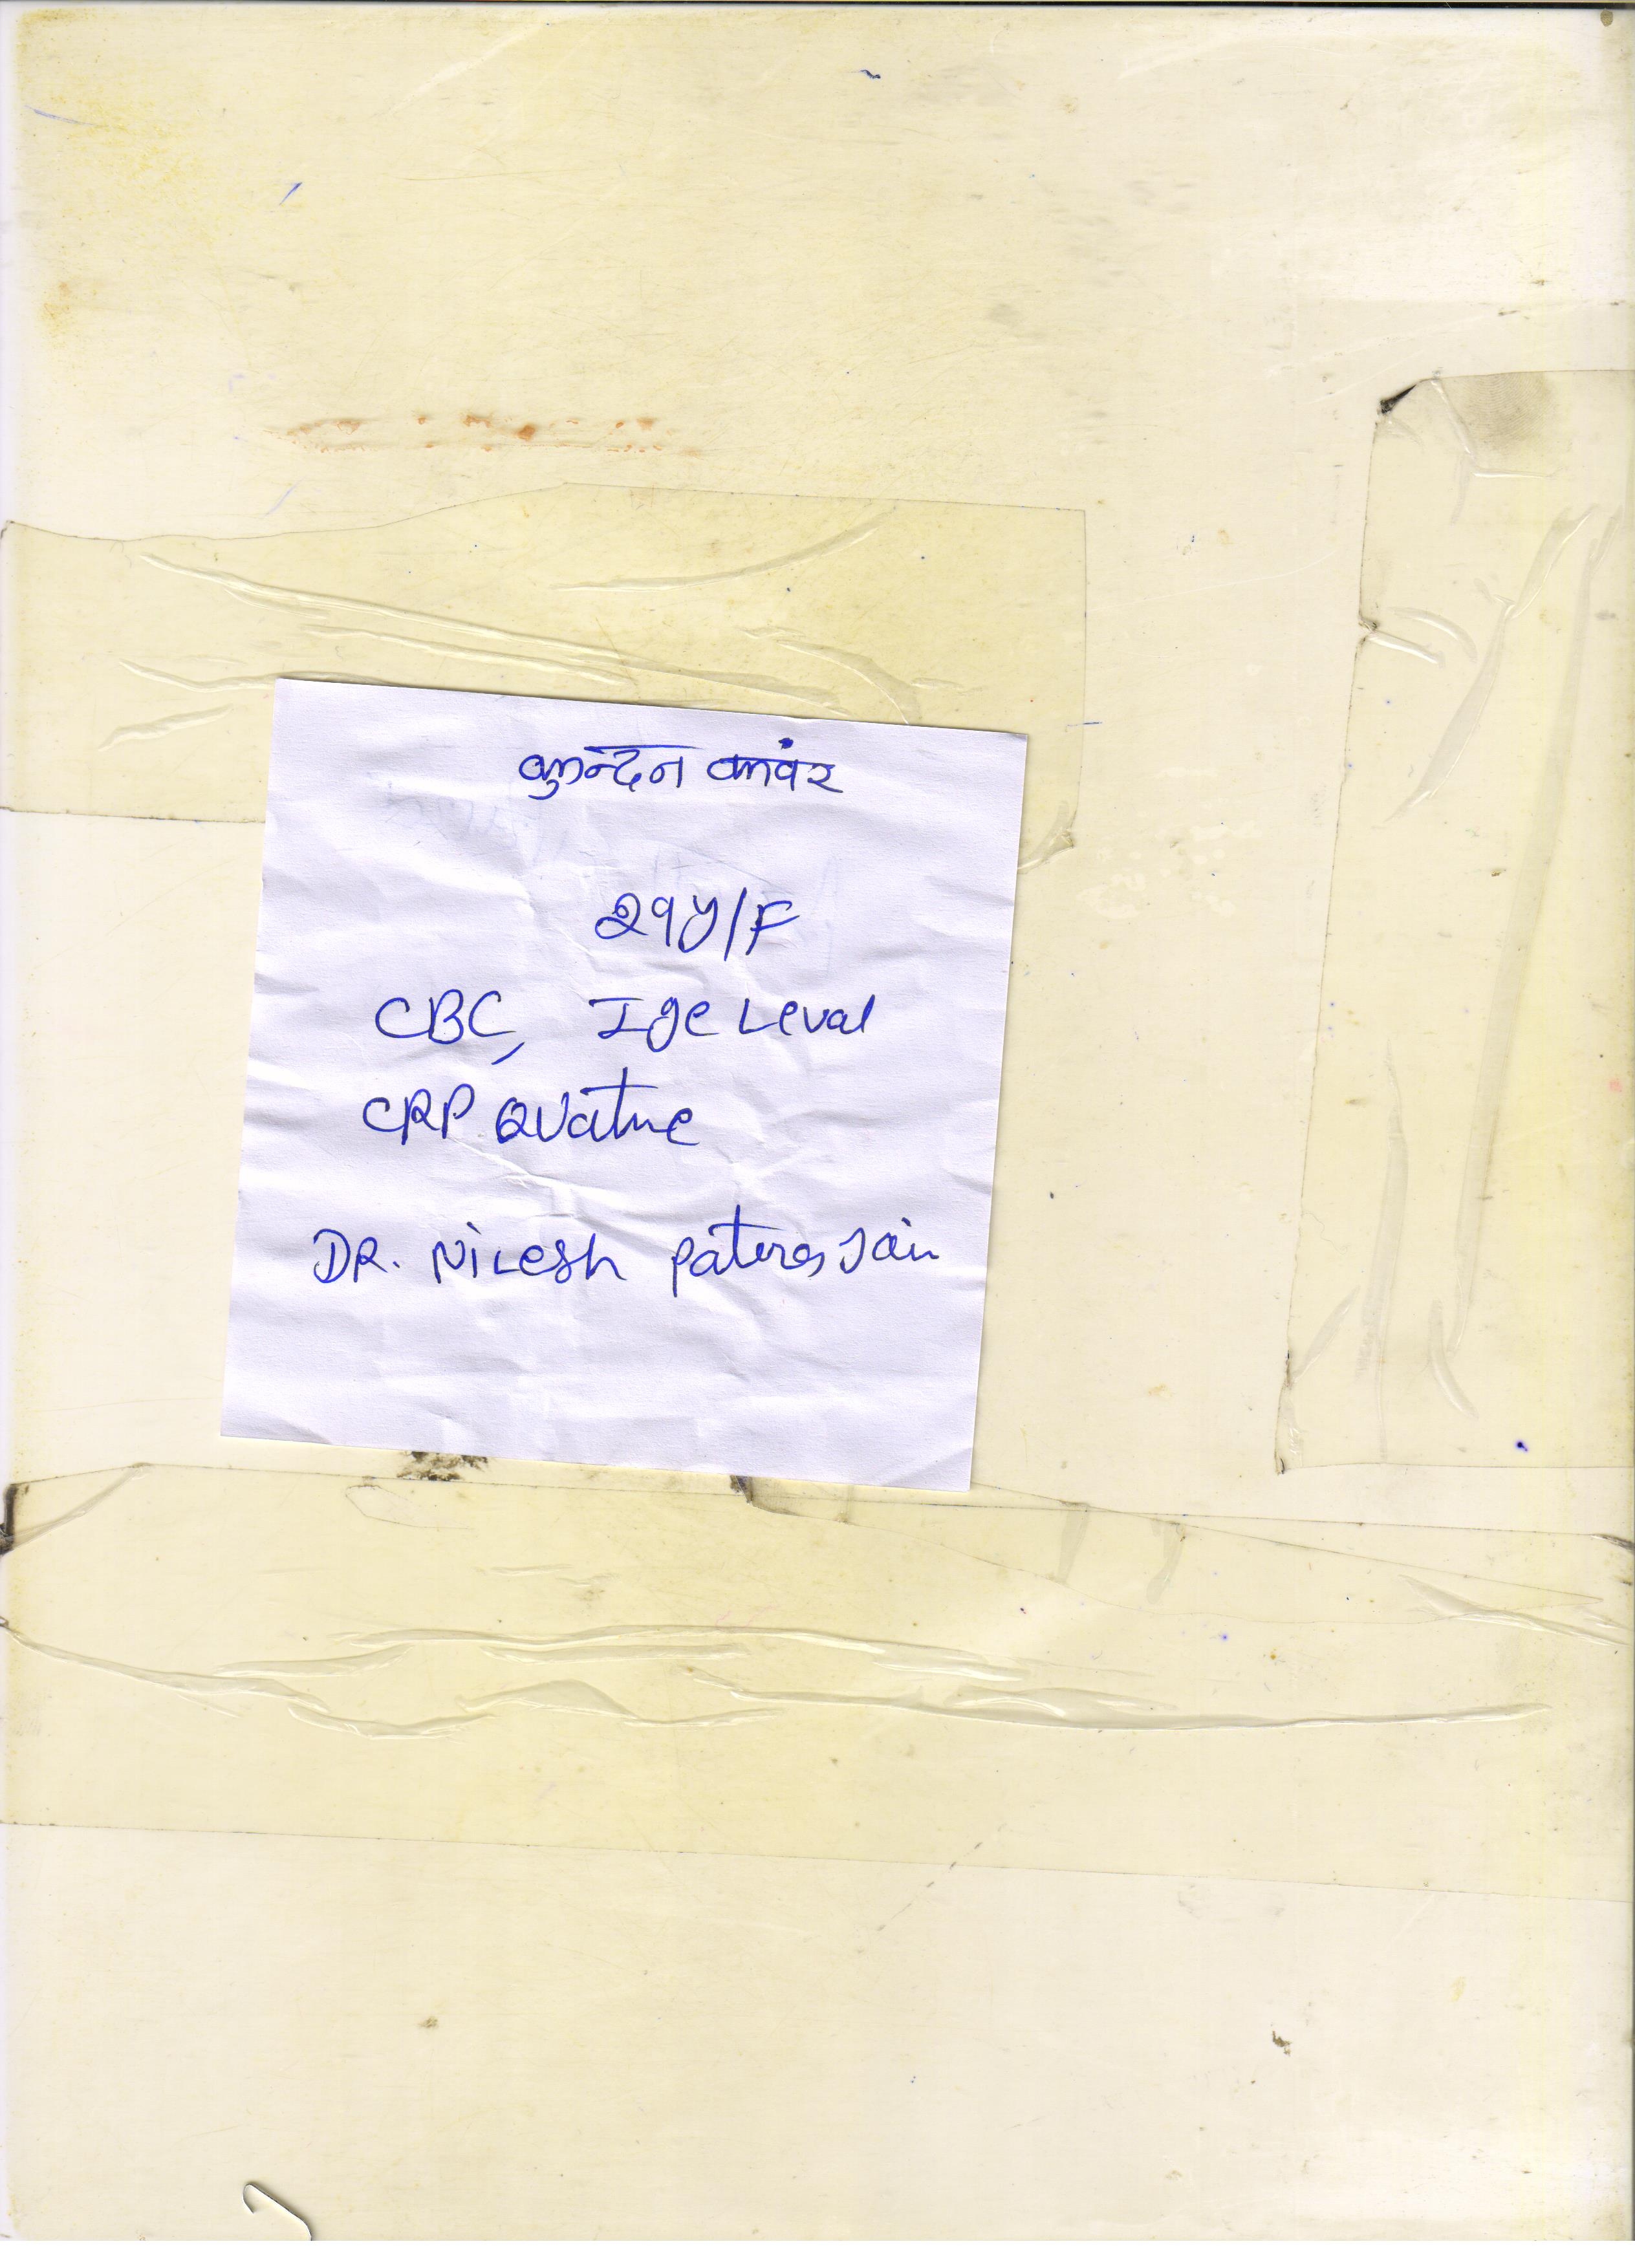 कुन्दन कवंर
29y/F
CBC, Ige Leval
CRP Qvatne
DR. NiLesh Jain